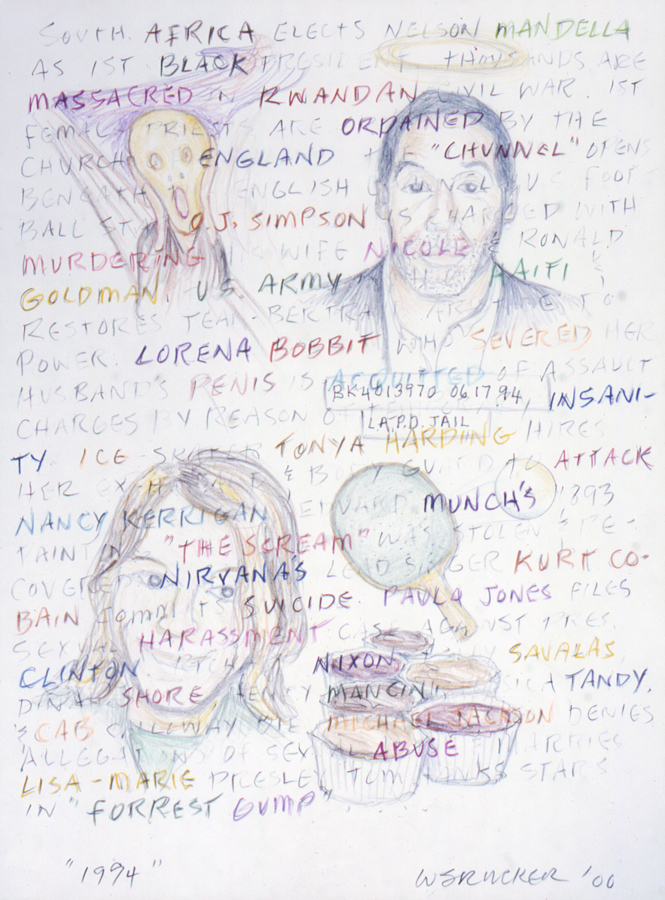 SOUTH AFRICA ELECTS NELSON MANDELLA
AS 1ST BLACK PRESIDENT. THOUSANDS ARE
MASSACRED IN RWANDAN CIVIL WAR. 1ST
FEMALE PRIESTS ARE ORDAINED BY THE
CHURCH OF ENGLAND. THE "CHUNNEL" OPENS
BENEATH THE ENGLISH CHANNEL. U.S. FOOT-
BALL STAR O.J. SIMPSON IS CHARGED WITH
MURDERING HIS WIFE NICOLE & RONALD
GOLDMAN. U.S. ARMY IN HAITI &
RESTORES JEAN-BERTRAND TO
POWER. LORENA BOBBIT WHO SEVERED HER
HUSBAND'S PENIS IS ACQUITTED OF ASSAULT
BK4013970 06.17.94
CHARGES BY REASON OF INSANI-
L.A.P.D. JAIL
TY. ICE-SKATER TONYA HARDING HIRES
HER EX-HUSBAND & BODYGUARD TO ATTACK
NANCY KERRIGAN. EDVARD MUNCH'S 1893
PAINTING "THE SCREAM" WAS STOLEN & RE-
COVERED. NIRVANA'S LEAD SINGER KURT CO-
BAIN COMMITS SUICIDE. PAULA JONES FILES
SEXUAL HARASSMENT CASE AGAINST PRES.
CLINTON. NIXON, SAVALAS,
DINAH SHORE, HENRY MANCINI, JESSICA TANDY,
& CAB CALLOWAY DIE. MICHAEL JACKSON DENIES
ALLEGATIONS OF SEXUAL ABUSE & MARRIES
LISA-MARIE PRESLEY. TOM HANKS STARS
IN "FORREST GUMP"
"1994"
WSRUCKER '00